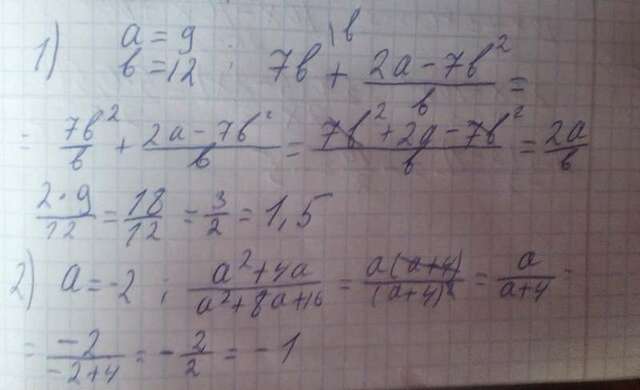 1) a = 9
в = 12 ; 7в\в + (2a - 7в²)/в =
= 7в²/в + (2a - 7в²)/в = (7в² + 2a - 7в²)/в = 2a/в
2·9/12 = 18/12 = 3/2 = 1,5
2) a = -2 ; (a² + 4a)/(a² + 8a + 16) = a(a+4)/(a+4)² = a/(a+4) =
= -2/(-2+4) = - 2/2 = - 1